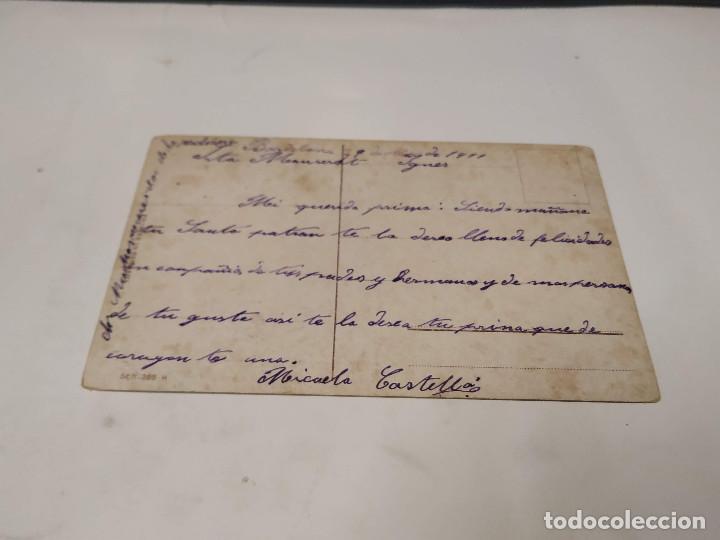 Barcelona 9 de de 1911
Mi querida prima: Siendo mañana
tu Santo patron te la deseo lleno de felicidades
en compañia de tus padres y hermanos y de mas personas
de tu gusto asi te la desea tu prima que de
corazon te ama.
Micaela Castellà
SER. 265 H
todocoleccion.net